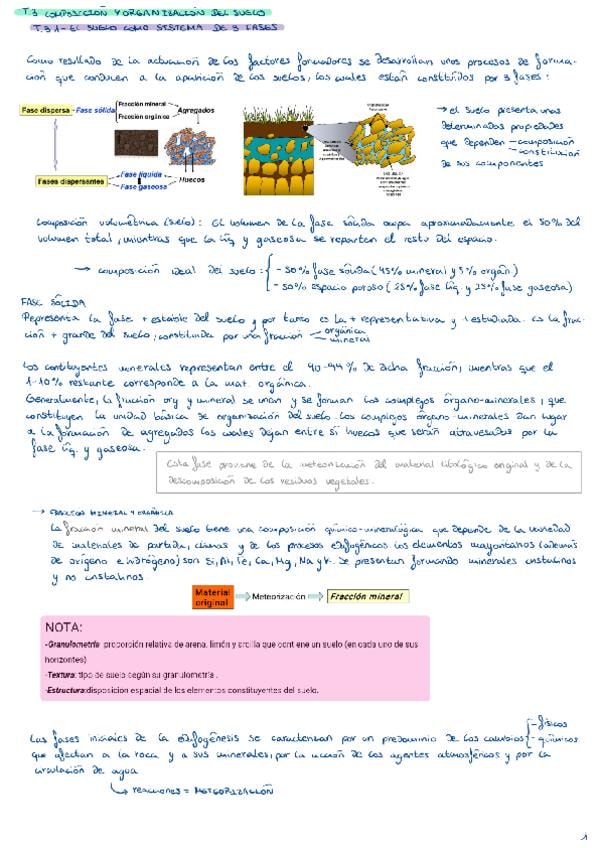 T.3 COMPOSICIÓN Y ORGANIZACIÓN DEL SUELO
T.3.1- EL SUELO COMO SISTEMA DE 3 FASES
Como resultado de la actuación de los factores formadores se desarrollan unos procesos de forma-
ción que conducen a la aparición de los suelos, los cuales están constituidos por 3 fases:
Fase dispersa - Fase sólida
Fracción mineral
Fracción orgánica
Agregados
Fases dispersantes
Fase líquida
Fase gaseosa
Huecos
→ el suelo presenta unas
determinadas propiedades
que dependen - composición
- constitución
de sus componentes
Composición volumétrica (suelo): El volumen de la fase sólida ocupa aproximadamente el 50% del
volumen total, mientras que la líq y gaseosa se reparten el resto del espacio.
→ composición ideal del suelo:
- 50% fase sólida (45% mineral y 5% orgán)
- 50% espacio poroso (25% fase líq. y 25% fase gaseosa)
FASE SÓLIDA
Representa la fase + estable del suelo y por tanto es la + representativa y + estudiada. Es la frac-
ción + grande del suelo, constituida por una fracción
orgánica
mineral
Los contituyentes minerales representan entre el 90-99% de dicha fracción, mientras que el
1-10% restante corresponde a la mat. orgánica.
Generalmente, la fracción org y mineral se unen y se forman los complejos órgano-minerales, que
constituyen la unidad básica de organización del suelo. Los complejos órgano-minerales dan lugar
a la formación de agregados los cuales dejan entre sí huecos que serán atravesados por la
fase líq. y gaseosa.
Esta fase proviene de la meteorización del material litológico original y de la
descomposición de los residuos vegetales.
→ FRACCIÓN MINERAL Y ORGÁNICA
La fracción mineral del suelo tiene una composición químico-mineralógica que depende de la variedad
de materiales de partida, climas y de los procesos edafogénicos. Los elementos mayoritarios (además
de oxígeno e hidrógeno) son Si, Al, Fe, Ca, Mg, Na y K. Se presentan formando minerales cristalinos
y no cristalinos
Material
original
Meteorización
Fracción mineral
NOTA:
-Granulometría: proporción relativa de arena, limón y arcilla que contiene un suelo (en cada uno de sus
horizontes)
-Textura: tipo de suelo según su granulometría .
-Estructura:disposición espacial de los elementos constituyentes del suelo.
Las fases iniciales de la edafogénesis se caracterizan por un predominio de los cambios
- físicos
- químicos
que afectan a la roca y a sus minerales, por la acción de los agentes atmosféricos y por la
circulación de agua
↳ reacciones = METEORIZACIÓN
1